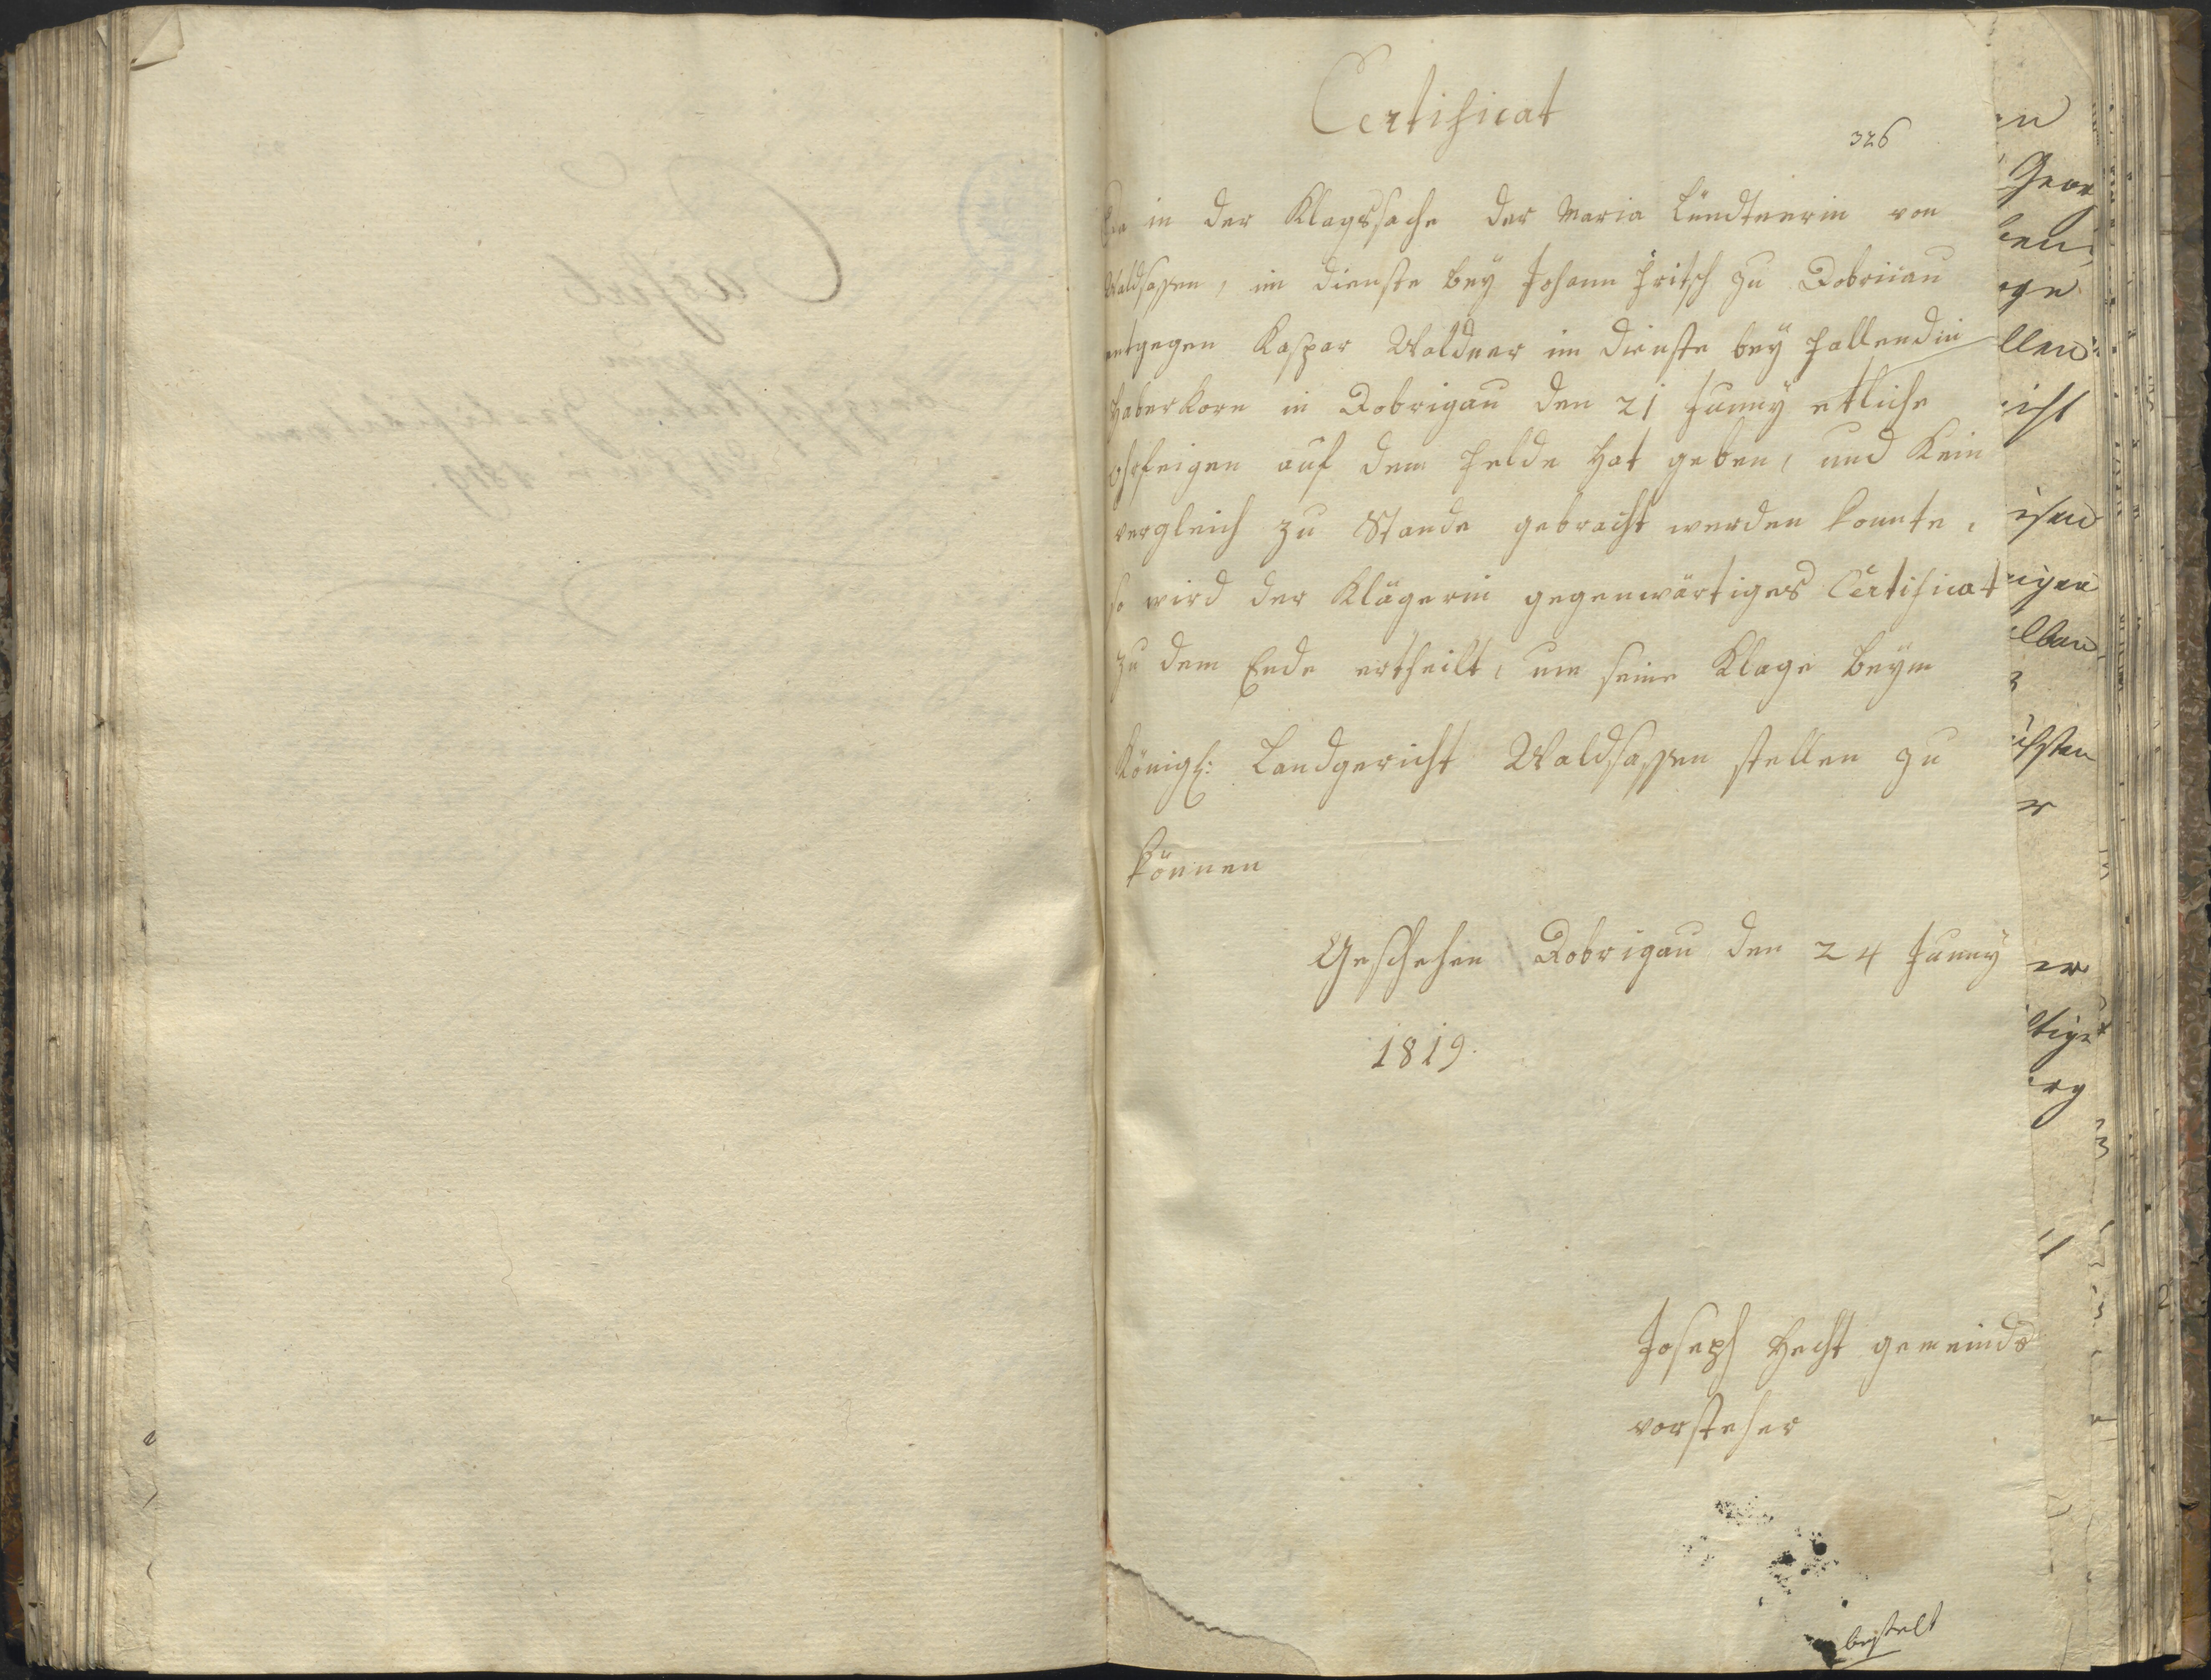 Certificat
326
in der Klagssache der Maria Lündtnerin von
Waldsassen, im Dienste bey Johann Fritsch zu Dobriiau
entgegen Kaspar Waldner im Dienste bey
Haberkorn in Dobrigau den 21 Junny etliche
ohrfeigen auf dem Felde hat geben, und Kein
vergleich zu Stande gebracht werden konnte,
so wird der Klägerin gegenwärtiges Certificat
zu dem Ende ertheilt, um seine Klage beym
Königl: Landgericht Waldsassen stellen zu
können
Geschehen Dobrigau den 24 Junny
1819.
Joseph Hecht gemeinds
vorsteher
bestelt